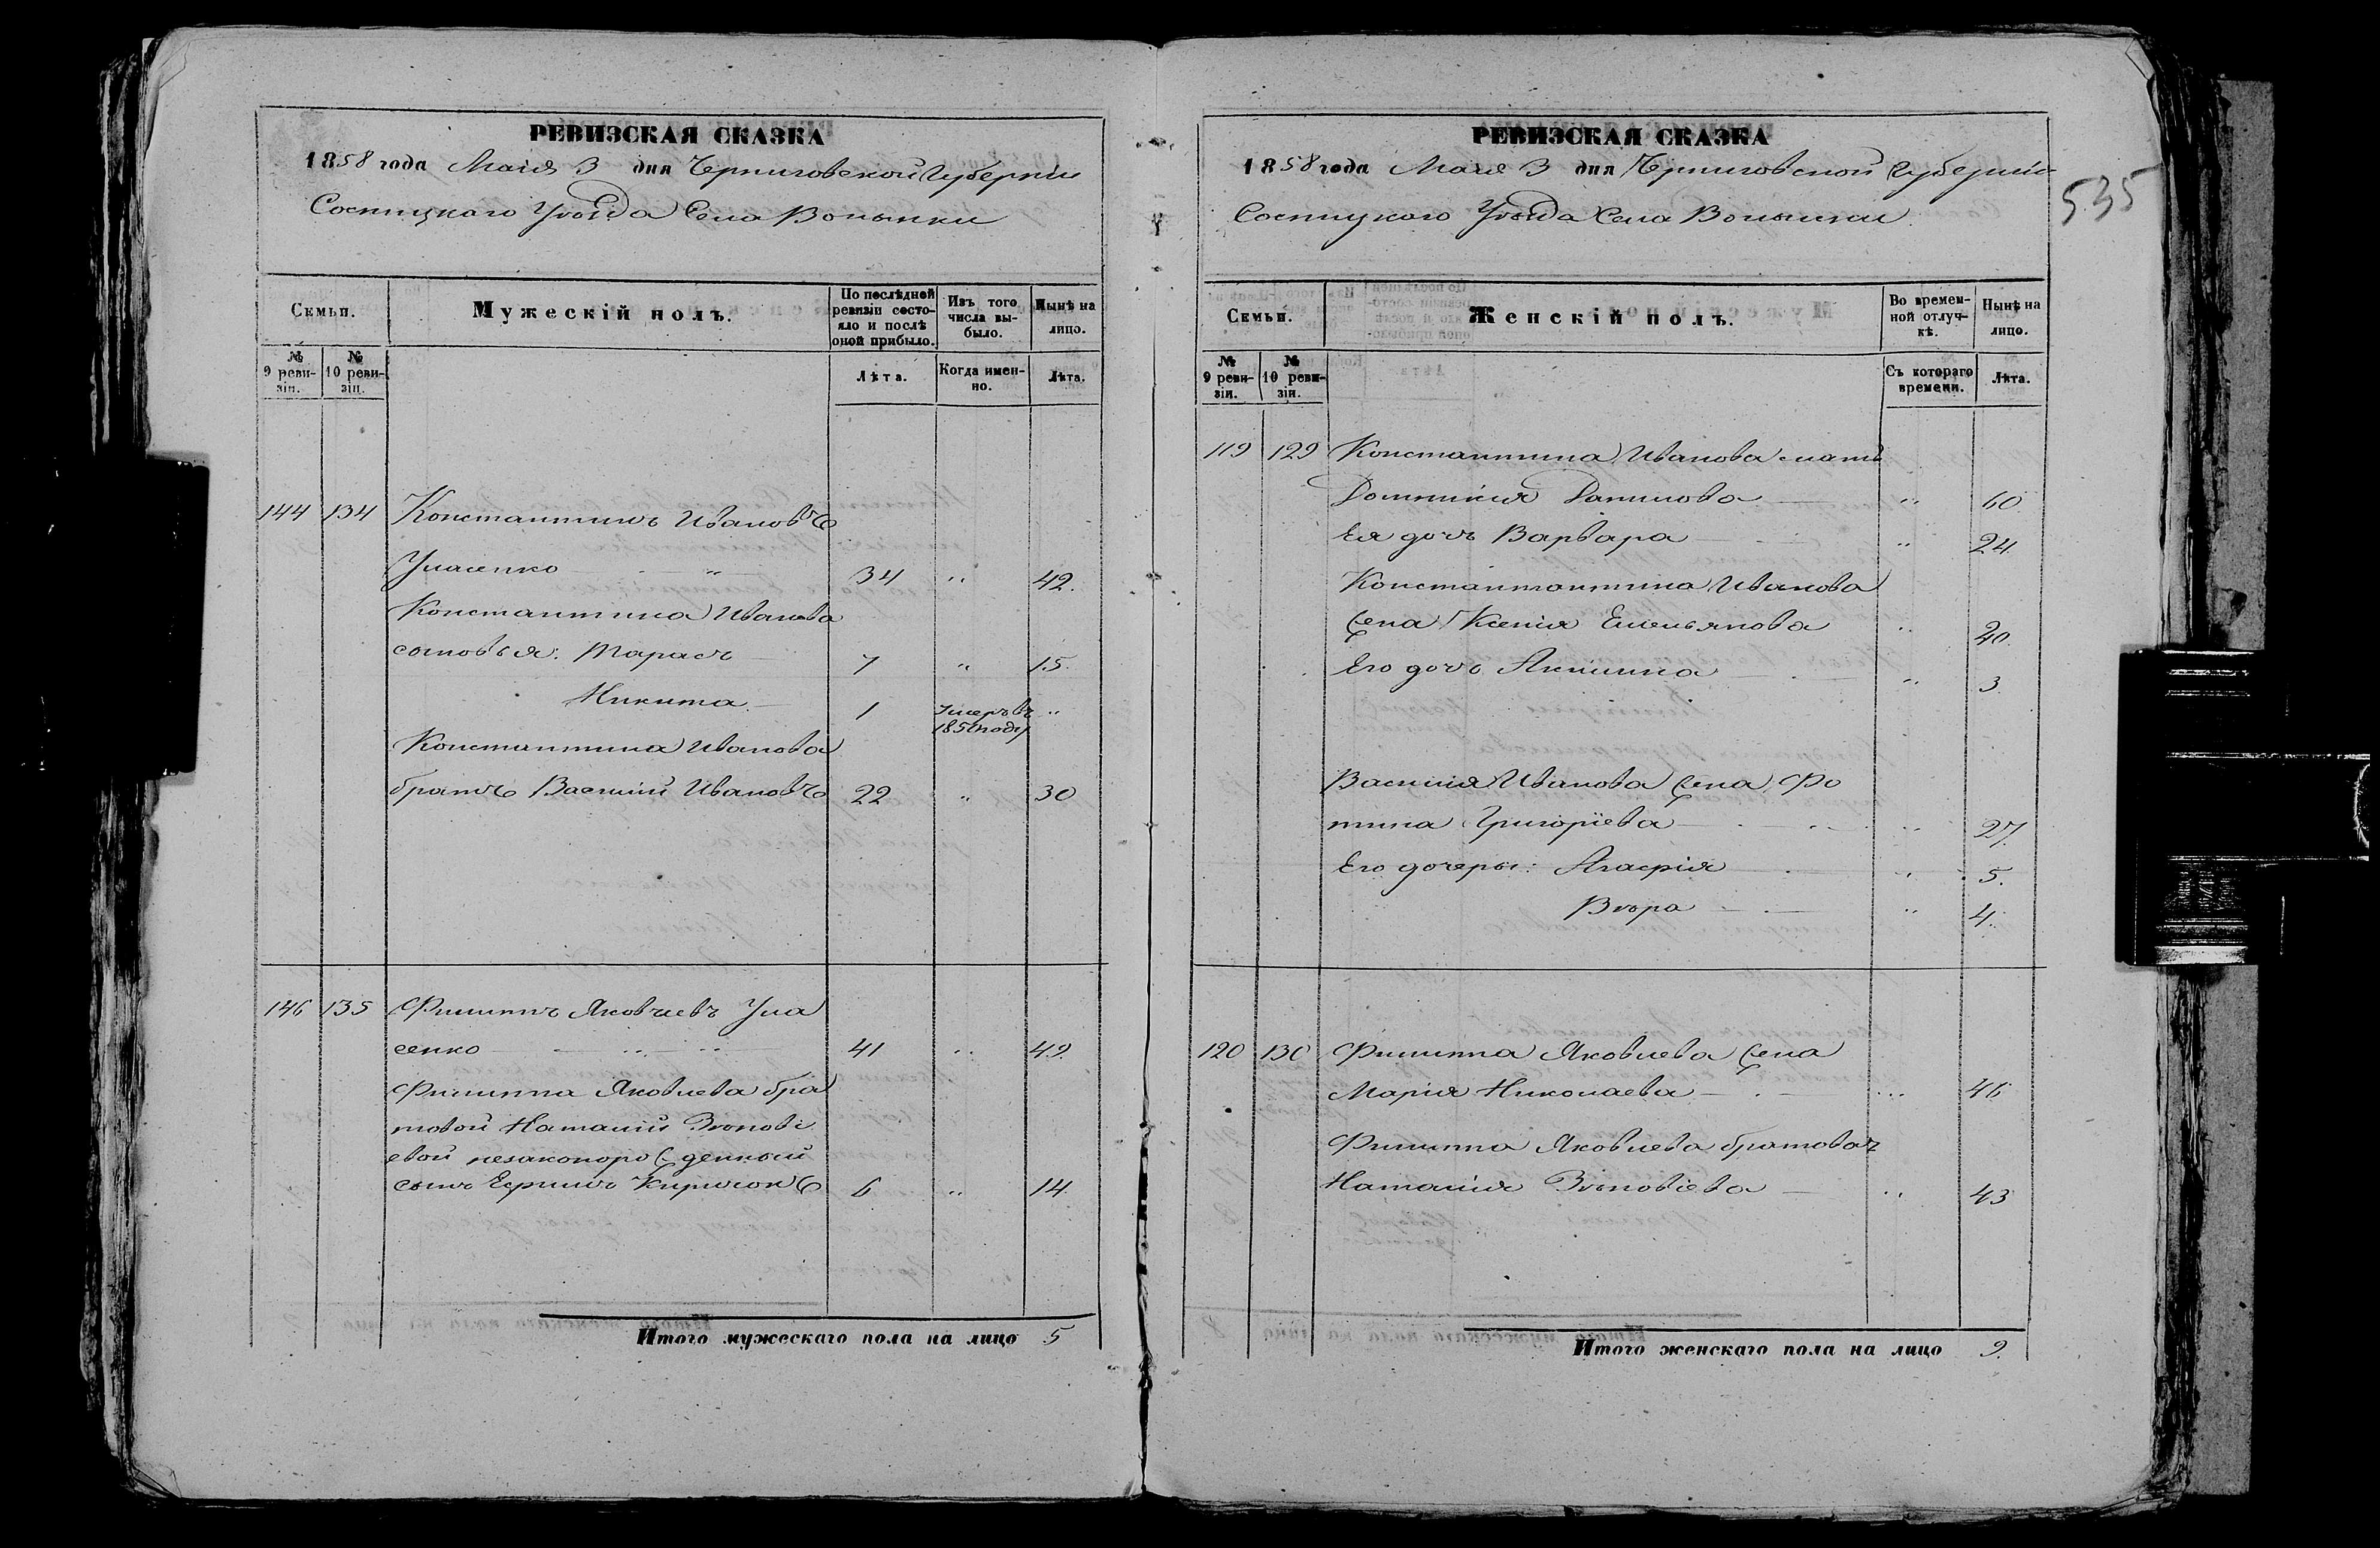 РЕВИЗСКАЯ СКАЗКА
1858 года Маія 3 дня Черниговской Губерніи
Сосницкаго Уѣзда Села Волынки
Семьи.
Мужескій полъ.
По послѣдней ревизіи состояло и послѣ оной прибыло.
Изъ того числа выбыло.
Нынѣ на лицо.
№ 9 ревизіи.
№ 10 ревизіи.
Лѣта.
Когда именно.
Лѣта.
144 134 Константинъ Ивановъ
Уласенко 34 " 42.
Константина Иванова
сыновья: Тарасъ 7 " 15.
Никита 1 Умеръ въ "
Константина Иванова
братъ Василий Ивановъ 22 " 30
146 135 Филиппъ Яковлевъ Ула
сенко 41 " 49.
Филиппа Яковлева бра
товой Наталии Зѣновіе
евой незаконорожденный
сынъ Ефимъ 6 " 14.
Итого мужескаго пола на лицо 5
РЕВИЗСКАЯ СКАЗКА
1858 года Маія 3 дня Черниговской Губерніи
Сосницкаго Уѣзда Села Волынки
535
Семьи.
Женскій полъ.
Во временной отлучкѣ.
Нынѣ на лицо.
№ 9 ревизіи.
№ 10 ревизіи.
Съ котораго времени.
Лѣта.
119 129 Константина Иванова мать
Домникія Данилова " 60
Ея дочь Варвара " 24
Константантина Иванова
жена Ксенія Емельянова " 40.
Его дочь Акилина " 3.
Василия Иванова жена Фо
тина Григоріева " 27.
Его дочеры: Агафія " 5.
Вѣра " 4.
120 130 Филиппа Яковлева жена
Марія Николаева " 46
Филиппа Яковлева братовая
Наталия Зѣновіева " 43
Итого женскаго пола на лицо 9.